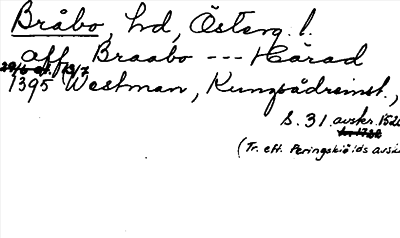 Bråbo, hd, Österg. l.
aff Braabo --- Härad
29/6 el. 13/7
1395 Westman, Kungsådreinst.,
s. 31. avskr. 152
(Tr. eft. Peringskiölds avs